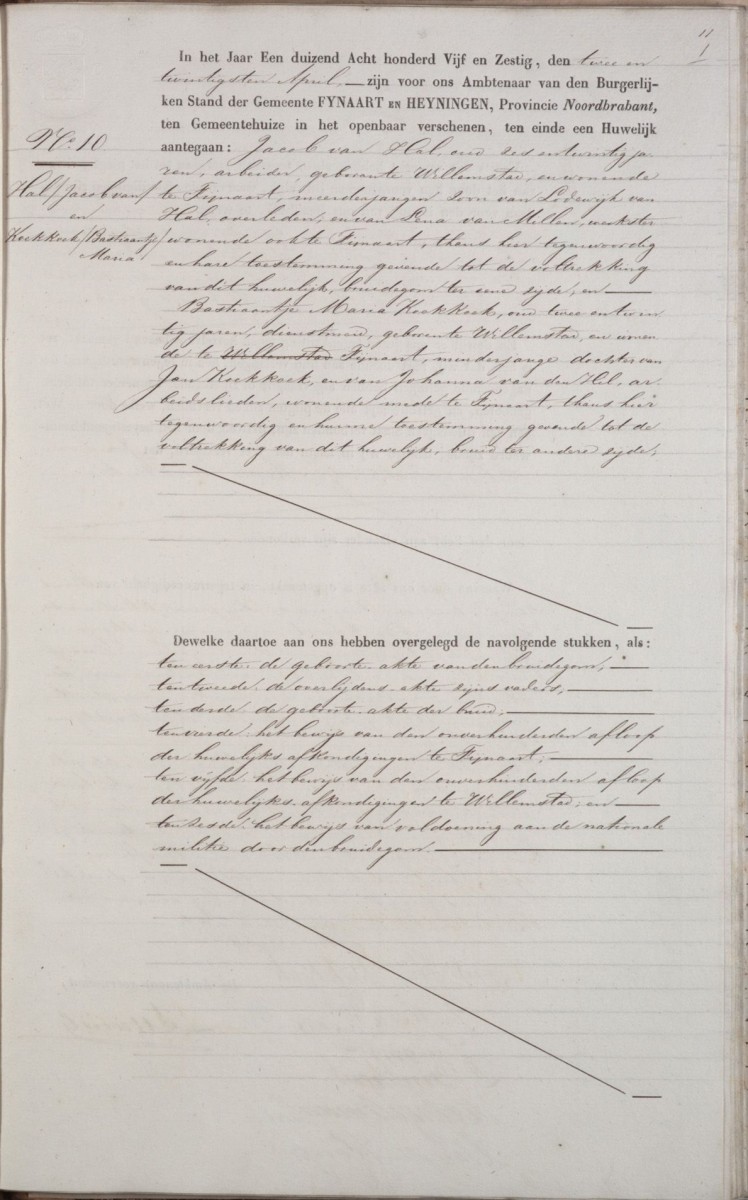 11
1
In het Jaar Een duizend Acht honderd Vijf en Zestig, den twee en
twintigsten April, zijn voor ons Ambtenaar van den Burgerlij-
ken Stand der Gemeente FYNAART EN HEYNINGEN, Provincie Noordbrabant,
ten Gemeentehuize in het openbaar verschenen, ten einde een Huwelijk
aantegaan: Jacob van Hal, oud zes entwintig ja-
ren, arbeider, geboorte Willemstad, en wonende
te Fijnaart, meerderjarigen zoon van Lodewijk van
Hal, overleden, en van Lena van Mellen, werkster
wonende ook te Fijnaart, thans hier tegenwoordig
en hare toestemming gevende tot de voltrekking
van dit huwelijk, bruidegom ter eene zijde, en
Bastiaantje Maria Koekkoek, oud twee entwin
tig jaren, dienstmeid, geboren te Willemstad, en wonen
de te Willemstad Fijnaart, minderjarige dochter van
Jan Koekkoek, en van Johanna van den Hil, ar-
beidslieden, wonende mede te Fijnaart, thans hier
tegenwoordig en hunne toestemming gevende tot de
voltrekking van dit huwelijk, bruid ter andere zijde,
No 10
Hal/Jacob van/
en
Koekkoek/Bastiaantje
Maria/
Dewelke daartoe aan ons hebben overgelegd de navolgende stukken, als:
ten eerste. de geboorte-akte van den bruidegom,
ten tweede. de overlijdens-akte zijns vaders,
ten derde. de geboorte-akte der bruid,
ten vierde. het bewijs van den onverhinderden afloop
der huwelijks afkondigingen te Fijnaart;
ten vijfde. het bewijs van den onverhinderden afloop
der huwelijks-afkondigingen te Willemstad; en
ten zesde. het bewijs van voldoening aan de nationale
militie door den bruidegom.